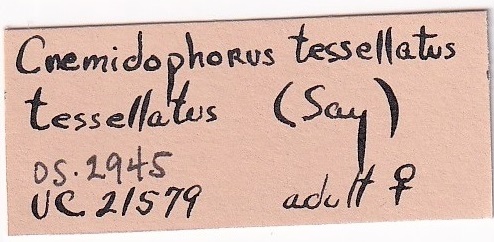 Cnemidophorus tessellatus
tessellatus (Say)
OS. 2945
UC. 21579 adult ♀